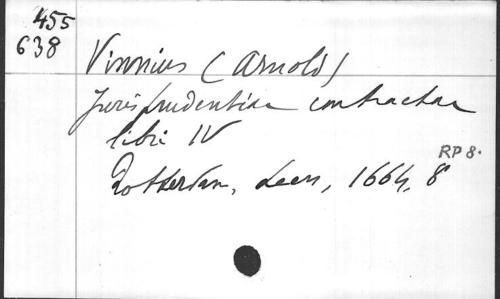 455
638
Vinnius (Arnold)
Jurisprudentiae contractae
libri IV
RP 8.
Rotterdam, Leers, 1664, 8°